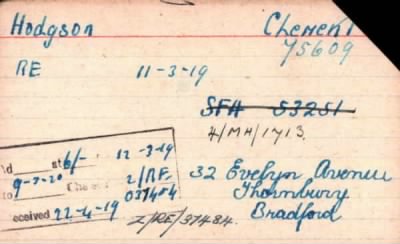 Hodgson Clement
75609
RE 11-3-19
SFA 53251
4/MH/1713.
at 6/- 12-3-19
9-7-20 2/RE
to 037484
eceived 22-4-19
2/RE/37484.
32 Evelyn Avenue
Thornbury
Bradford